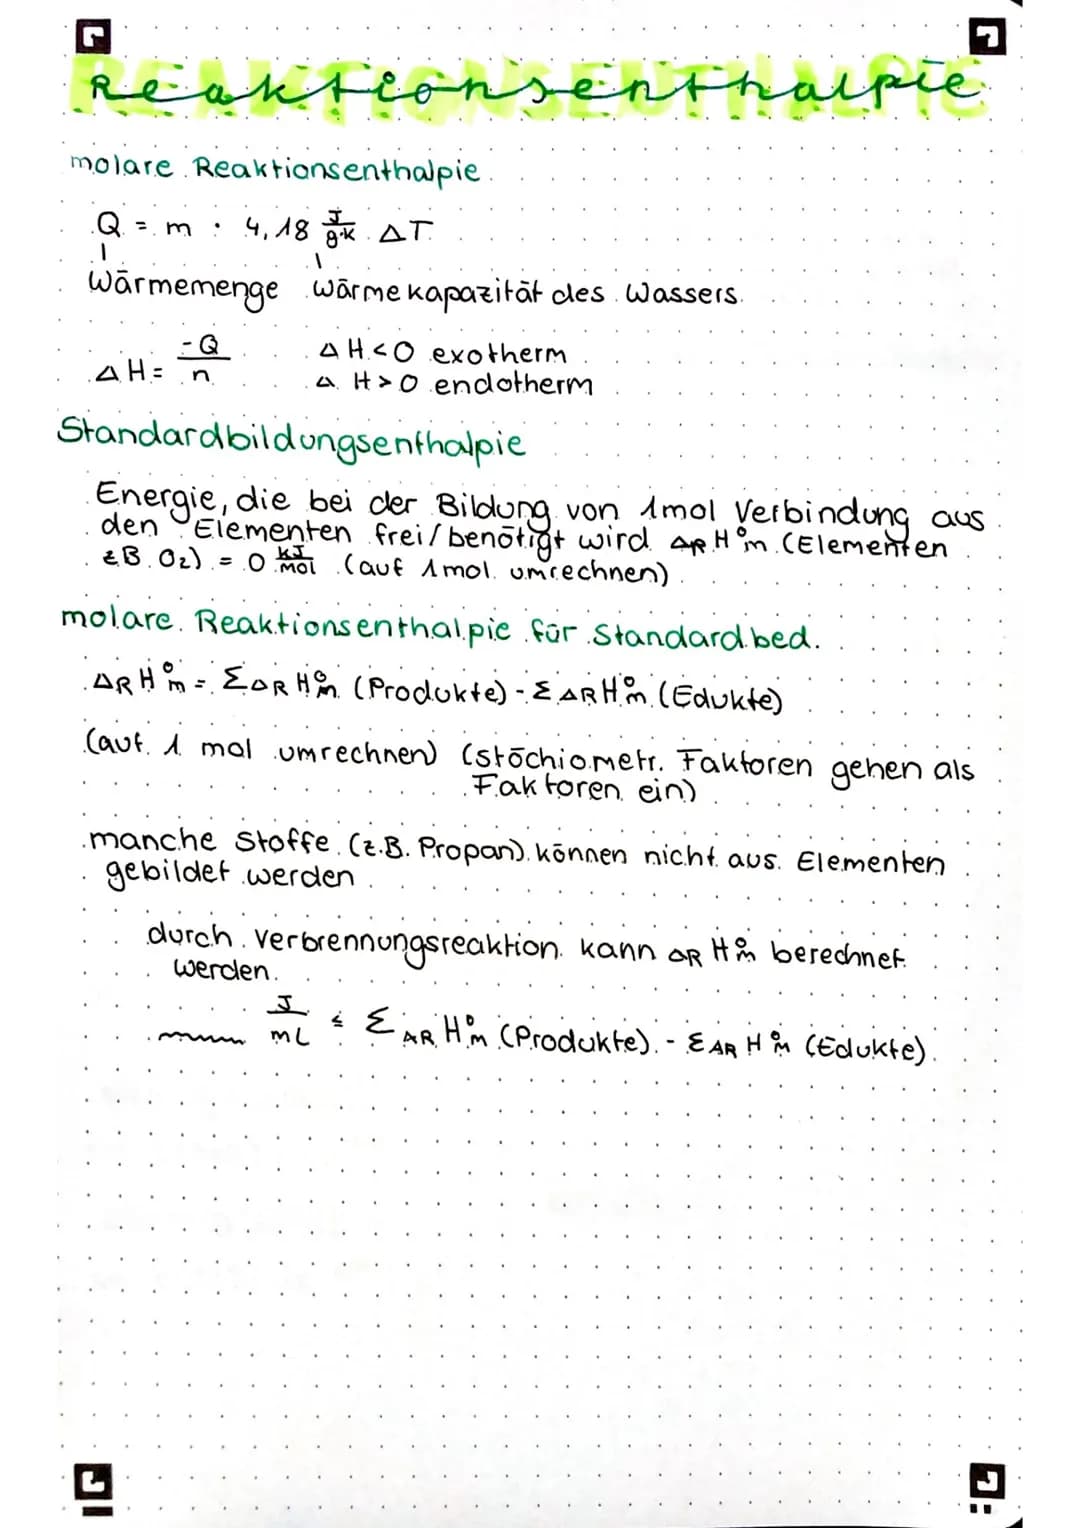 REAKTIONSENTHALPIE
Reaktionsenthalpie
molare Reaktionsenthalpie
Q = m · 4,18 J/g·K ΔT
Wärmemenge Wärmekapazität des Wassers
ΔH = -Q/n ΔH<0 exotherm
ΔH>0 endotherm
Standardbildungsenthalpie
Energie, die bei der Bildung von 1mol Verbindung aus
den Elementen frei/benötigt wird ΔRH°m (Elementen
z.B. O2) = 0 kJ/mol (auf 1mol umrechnen)
molare Reaktionsenthalpie für Standardbed.
ΔRH°m = ΣΔRH°m (Produkte) - ΣΔRH°m (Edukte)
(auf 1 mol umrechnen) (stöchiometr. Faktoren gehen als
Faktoren ein)
manche Stoffe (z.B. Propan) können nicht aus Elementen
gebildet werden
durch Verbrennungsreaktion kann ΔRH°m berechnet
werden
J/mL = ΣΔRH°m (Produkte) - ΣΔRH°m (Edukte)